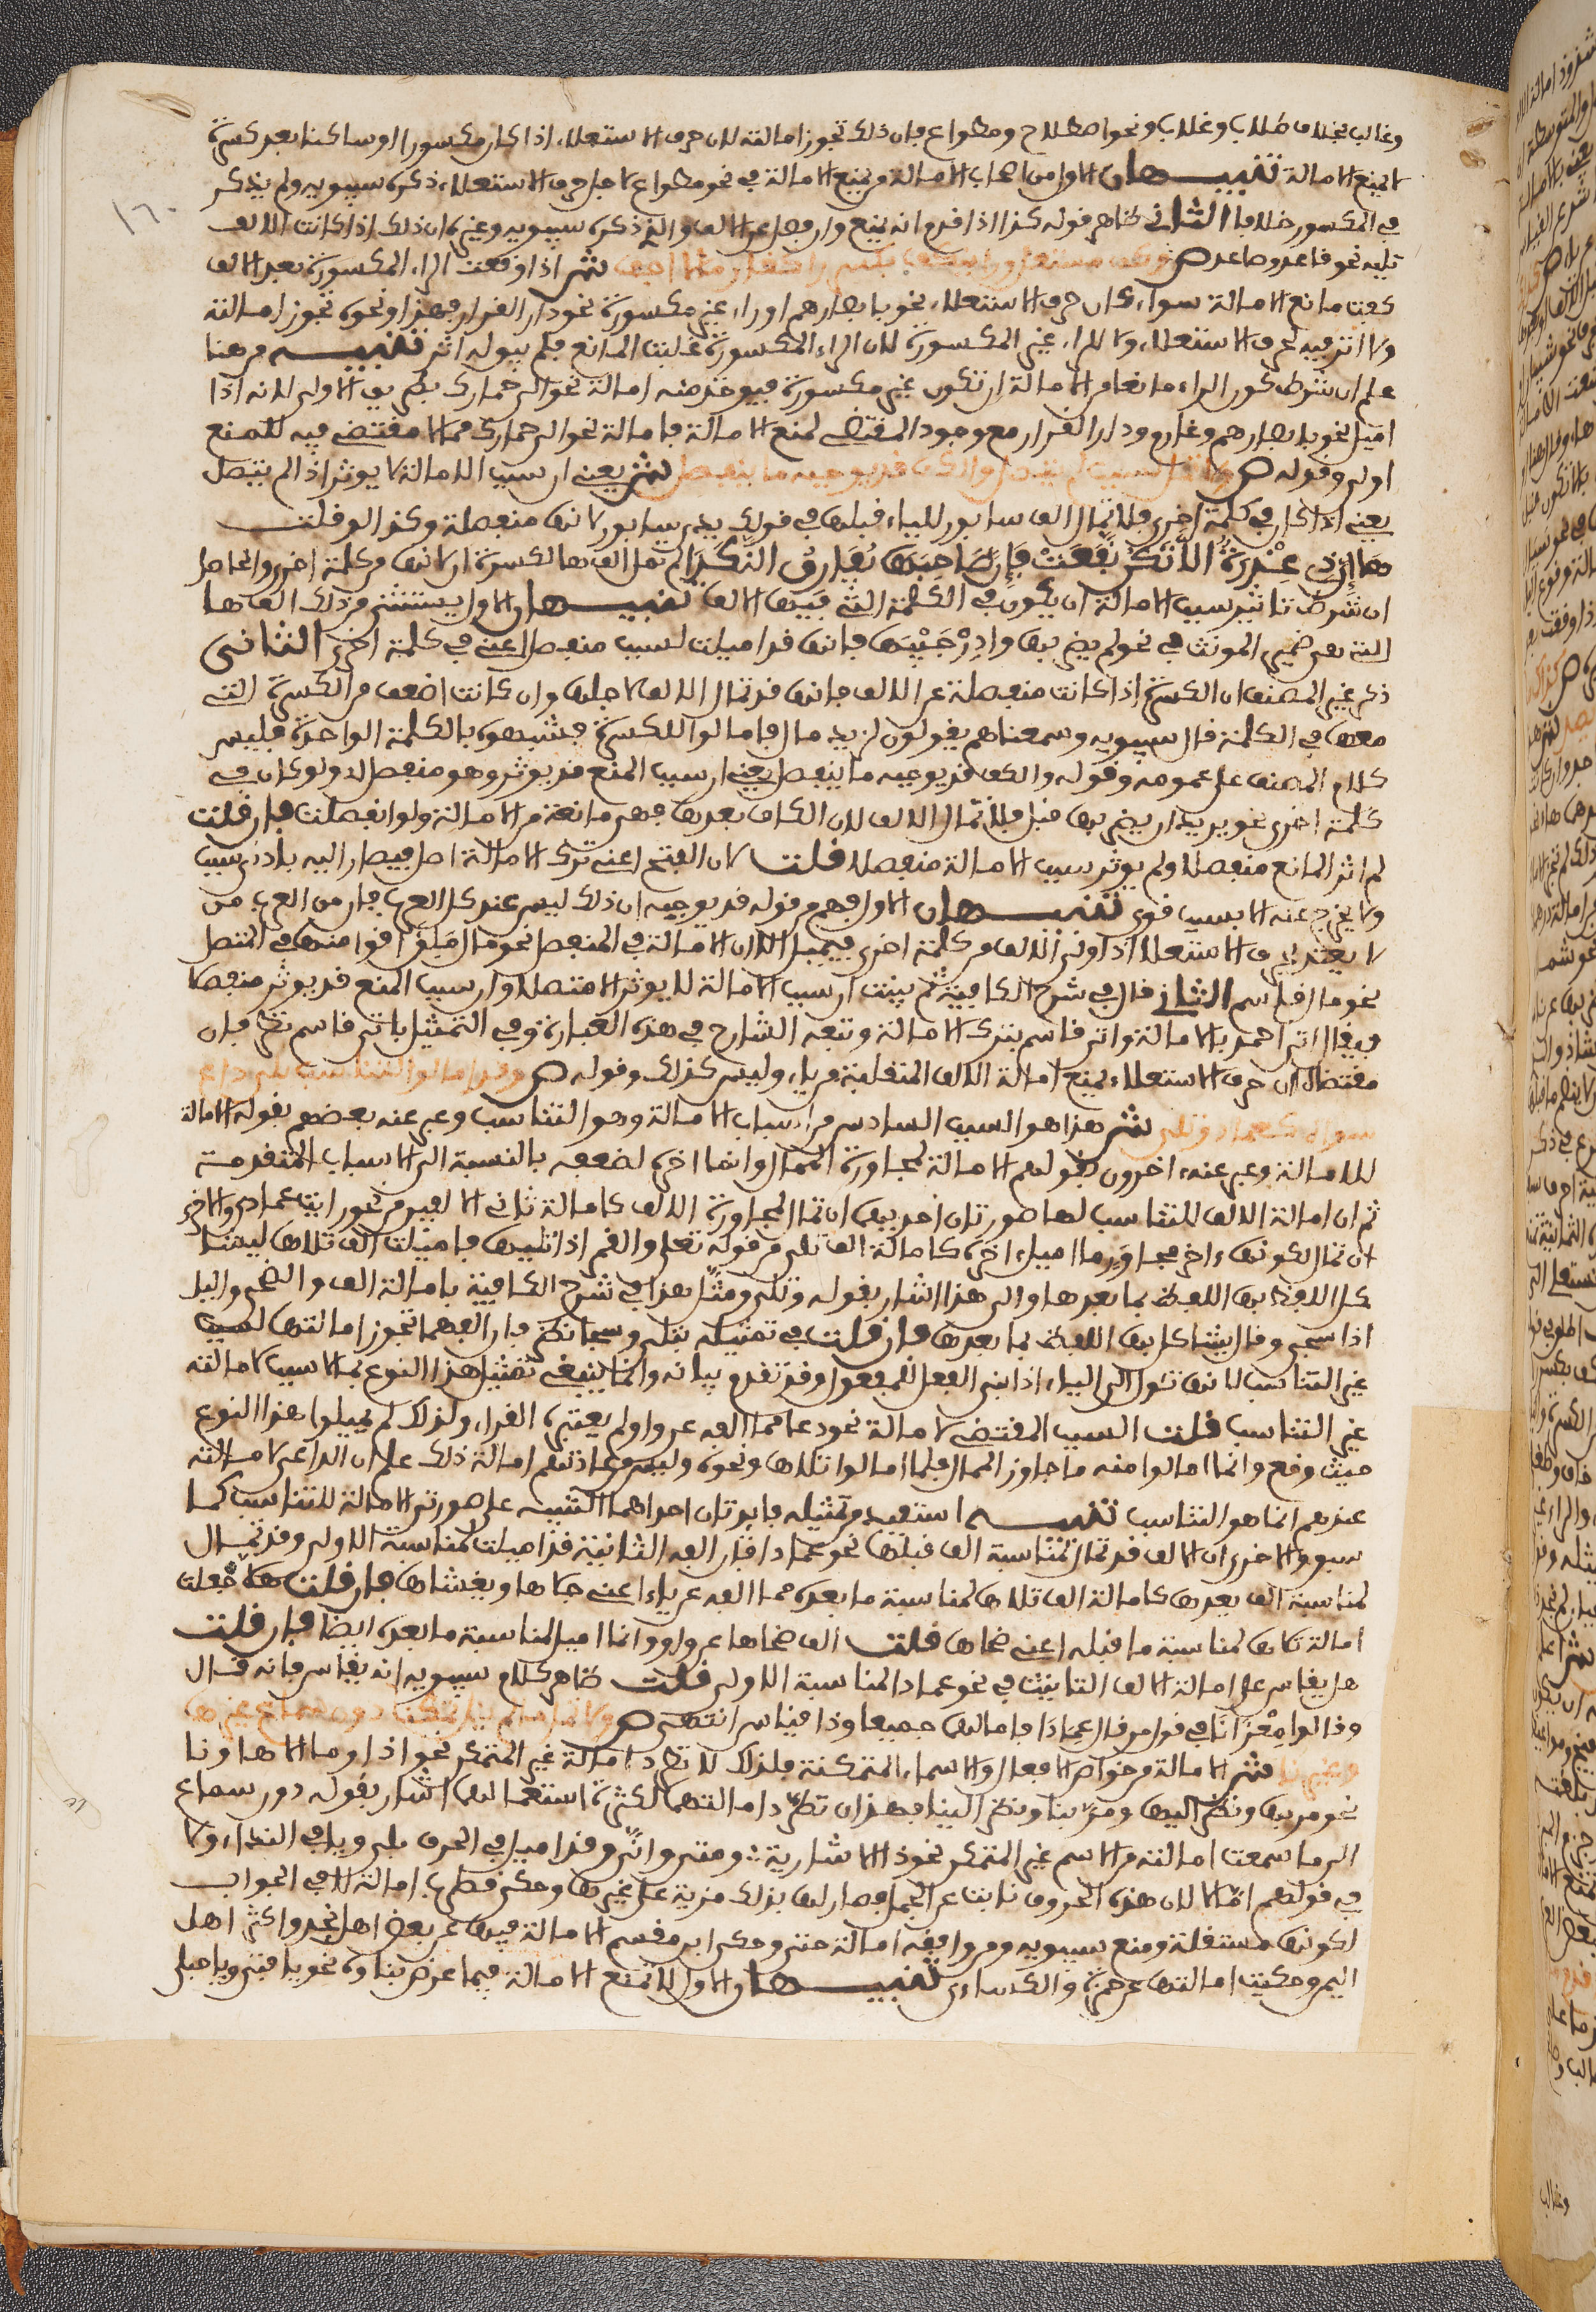 وغالب بخلاف طلاب وغلاب ونحو اصطلاح ومطواع فان ذلك تجوز امالته لان حرف الاستعلاء اذا كان مكسورا او ساكنا بعد كسرة
لا يمنع الامالة تنبيهان الاول من اصحاب الامالة من يمنع الامالة في نحو مطواع لاجل حرف الاستعلاء ذكره سيبويه ولم يذكر
في المكسور خلافا الثاني ظاهر قوله كذا اذا قدم انه يمنع وان فصل عن الالف والذي ذكره سيبويه وغيره ان ذلك اذا كانت الالف
تليه نحو قاعد وصاعد ص وكف مستعل ورا ينكف بكسر را كغارما لا اجفو ش اذا وقعت الراء المكسورة بعد الالف
كفت مانع الامالة سواء كان حرف الاستعلاء نحو يا بصارهم او راء غير مكسورة نحو دار القرار فهذا ونحوه تجوز امالته
ولا اثر فيه لحرف الاستعلاء ولا للراء غير المكسورة لان الراء المكسورة غلبت المانع فلم يبق له اثر تنبيه من هنا
علم ان شرط كون الراء مانعة من الامالة ان تكون غير مكسورة فيوخذ منه امالة نحو الى حمارك بطريق الاولى لانه اذا
اميل نحو يا بصارهم وغارم ودار القرار مع وجود المقتضي لمنع الامالة فامالة نحو الى حمارك مما لا مقتضي فيه للمنع
اولى وقوله ص ولا تمل لسبب لم يتصل والكف قد يوجبه ما ينفصل ش يعني ان سبب الامالة لا يوثر اذا لم يتصل
يعني اذا كان في كلمة اخرى فلا تمال الف سابور للياء قبلها في قولك يدي سابور لانها منفصلة وكذا لو قلت
ها ان ذي عذرة الا تكن نفعت فان صاحبها مشارك النكد لم تمل الف ها لكسرة ان لانها من كلمة اخرى والحاصل
ان شرط تاثير سبب الامالة ان يكون في الكلمة التي فيها الالف تنبيهان الاول يستثنى من ذلك الف ها
التي هي ضمير المونث في نحو لم يضربها وادر جيبها فانها قد اميلت لسبب منفصل اعني في كلمة اخرى الثاني
ذكر غير المصنف ان الكسرة اذا كانت منفصلة عن الالف فانها قد تمال الالف لاجلها وان كانت اضعف من الكسرة التي
معها في الكلمة قال سيبويه وسمعناهم يقولون لزيد مال فامالوا للكسرة فشبهوه بالكلمة الواحدة فليس
كلام المصنف على عمومه وقوله والكف قد يوجبه ما ينفصل يعني ان سبب المنع قد يوثر وهو منفصل اي ولو كان في
كلمة اخرى نحو يريد ان يضربها قبل فلا تمال الالف لان القاف بعدها فهي مانعة من الامالة ولو انفصلت فان قلت
لم اثر المانع منفصلا ولم يوثر سبب الامالة منفصلا قلت لان الفتح اعني ترك الامالة اصل فيصار اليه بادنى سبب
ولا يخرج عنه الا بسبب قوي تنبيهان الاول فهم من قوله قد يوجبه ان ذلك ليس عند كل العرب فان من العرب من
لا يعتد بحرف الاستعلاء اذا ولي الالف من كلمة اخرى فيميل الا ان الامالة في المنفصل نحو مال ملق اقوى منها في المتصل
نحو ما اقبل قاسم الثاني قال في شرح الكافية ثم بينت ان سبب الامالة لا يوثر الا متصلا وان سبب المنع قد يوثر منفصلا
فيقال اتى احمد بالامالة واتى قاسم بترك الامالة وتبعه الشارح في هذه العبارة وفي التمثيل باتى قاسم نظر فان
مقتضاه ان حرف الاستعلاء يمنع امالة الالف المنقلبة من ياء وليس كذلك وقوله ص وقد امالوا لتناسب بلا داع
سواه كعمادا وتلا ش هذا هو السبب السادس من اسباب الامالة وهو التناسب وعبر عنه بعضهم بقوله الامالة
للامالة وعبر عنه اخرون بقولهم الامالة لمجاورة الممال وانما اخره لضعفه بالنسبة الى الاسباب المتقدمة
ثم ان امالة الالف للتناسب لها صورتان احديهما ان تمال لمجاورة الالف كامالة ثاني الالفين من نحو رايت عمادى والاخرى
ان تمال لكونها اخر مجاور ما اميل اخره كامالة الف تلى من قوله تعلى والقمر اذا تليها فاميلت الف تلاها ليشا
كل اللفظ بها اللفظ بما بعدها والى هذا اشار بقوله وتلى ومثل هذا في شرح الكافية بامالة الف والضحى واليل
اذا سجى وقال ليشاكل بها اللفظ بما بعدها فان قلت في تمثيله بتلى وسجا نظر فان الفهما تجوز امالتها لسبب
غير التناسب لانها تئول الى الياء اذا بني الفعل للمفعول وقد تقدم بيانه وانما ينبغي تمثيل هذا النوع بما لا سبب لامالته
غير التناسب قلت السبب المقتضي لامالة نحو دعا مما الفه عن واو لم يعتبره القراء ولذلك لم يميلوا هذا النوع
حيث وقع وانما امالوا منه ما جاور الممال فلما امالوا تلاها ونحوه وليس من عادتهم امالة ذلك علم ان الداعي لامالته
عندهم انما هو التناسب تنبيه استفيد من تمثيله فايدتان احداهما التنبيه على صورتي الامالة للتناسب كما
سبق والاخرى ان الالف قد تمال لمناسبة الف قبلها نحو عمادا فان الفه الثانية قد اميلت لمناسبة الاولى وقد تمال
لمناسبة الف بعدها كامالة الف تلاها لمناسبة ما بعده مما الفه عن ياء اعني جلاها ويغشاها فان قلت هلا جعلت
امالة تلاها لمناسبة ما قبله اعني ضحاها قلت الف ضحاها عن واو وانما اميل لمناسبة ما بعده ايضا فان قلت
هل يقاس على امالة الالف الثانية في نحو عمادا لمناسبة الاولى قلت ظاهر كلام سيبويه انه يقاس فانه قال
وقالوا مغزانا في قول من قال عمادا فامالهما جميعا وذا قياس انتهى ص ولا تمل ما لم ينل تمكنا دون سماع غيرها
وغيرنا ش الامالة من خواص الافعال والاسماء المتمكنة فلذلك لا تطرد امالة غير المتمكن نحو اذا وما الا ها ونا
نحو مر بها ونظر اليها ومر بنا ونظر الينا فهذان تطرد امالتهما لكثرة استعمالهما اشار بقوله دون سماع
الى ما سمعت امالته من الاسم غير المتمكن نحو ذا الاشارية ومتى وانى وقد اميل في الحرف بلى ويا في النداء ولا
في قولهم اما لا لان هذه الحروف نابت عن الجمل فصار لها بذلك مزية على غيرها وحكى قطرب امالة لا في الجواب
لكونها مستقلة ومنع سيبويه ومن وافقه امالة حتى وحكى ابن مقسم الامالة فيها عن بعض اهل نجد واكثر اهل
اليمن وحكيت امالتها عن حمزة والكساءي تنبيهان الاول لا تمنع الامالة فيما عرض بناوه نحو يا فتى ويا حبلى
١٦٠